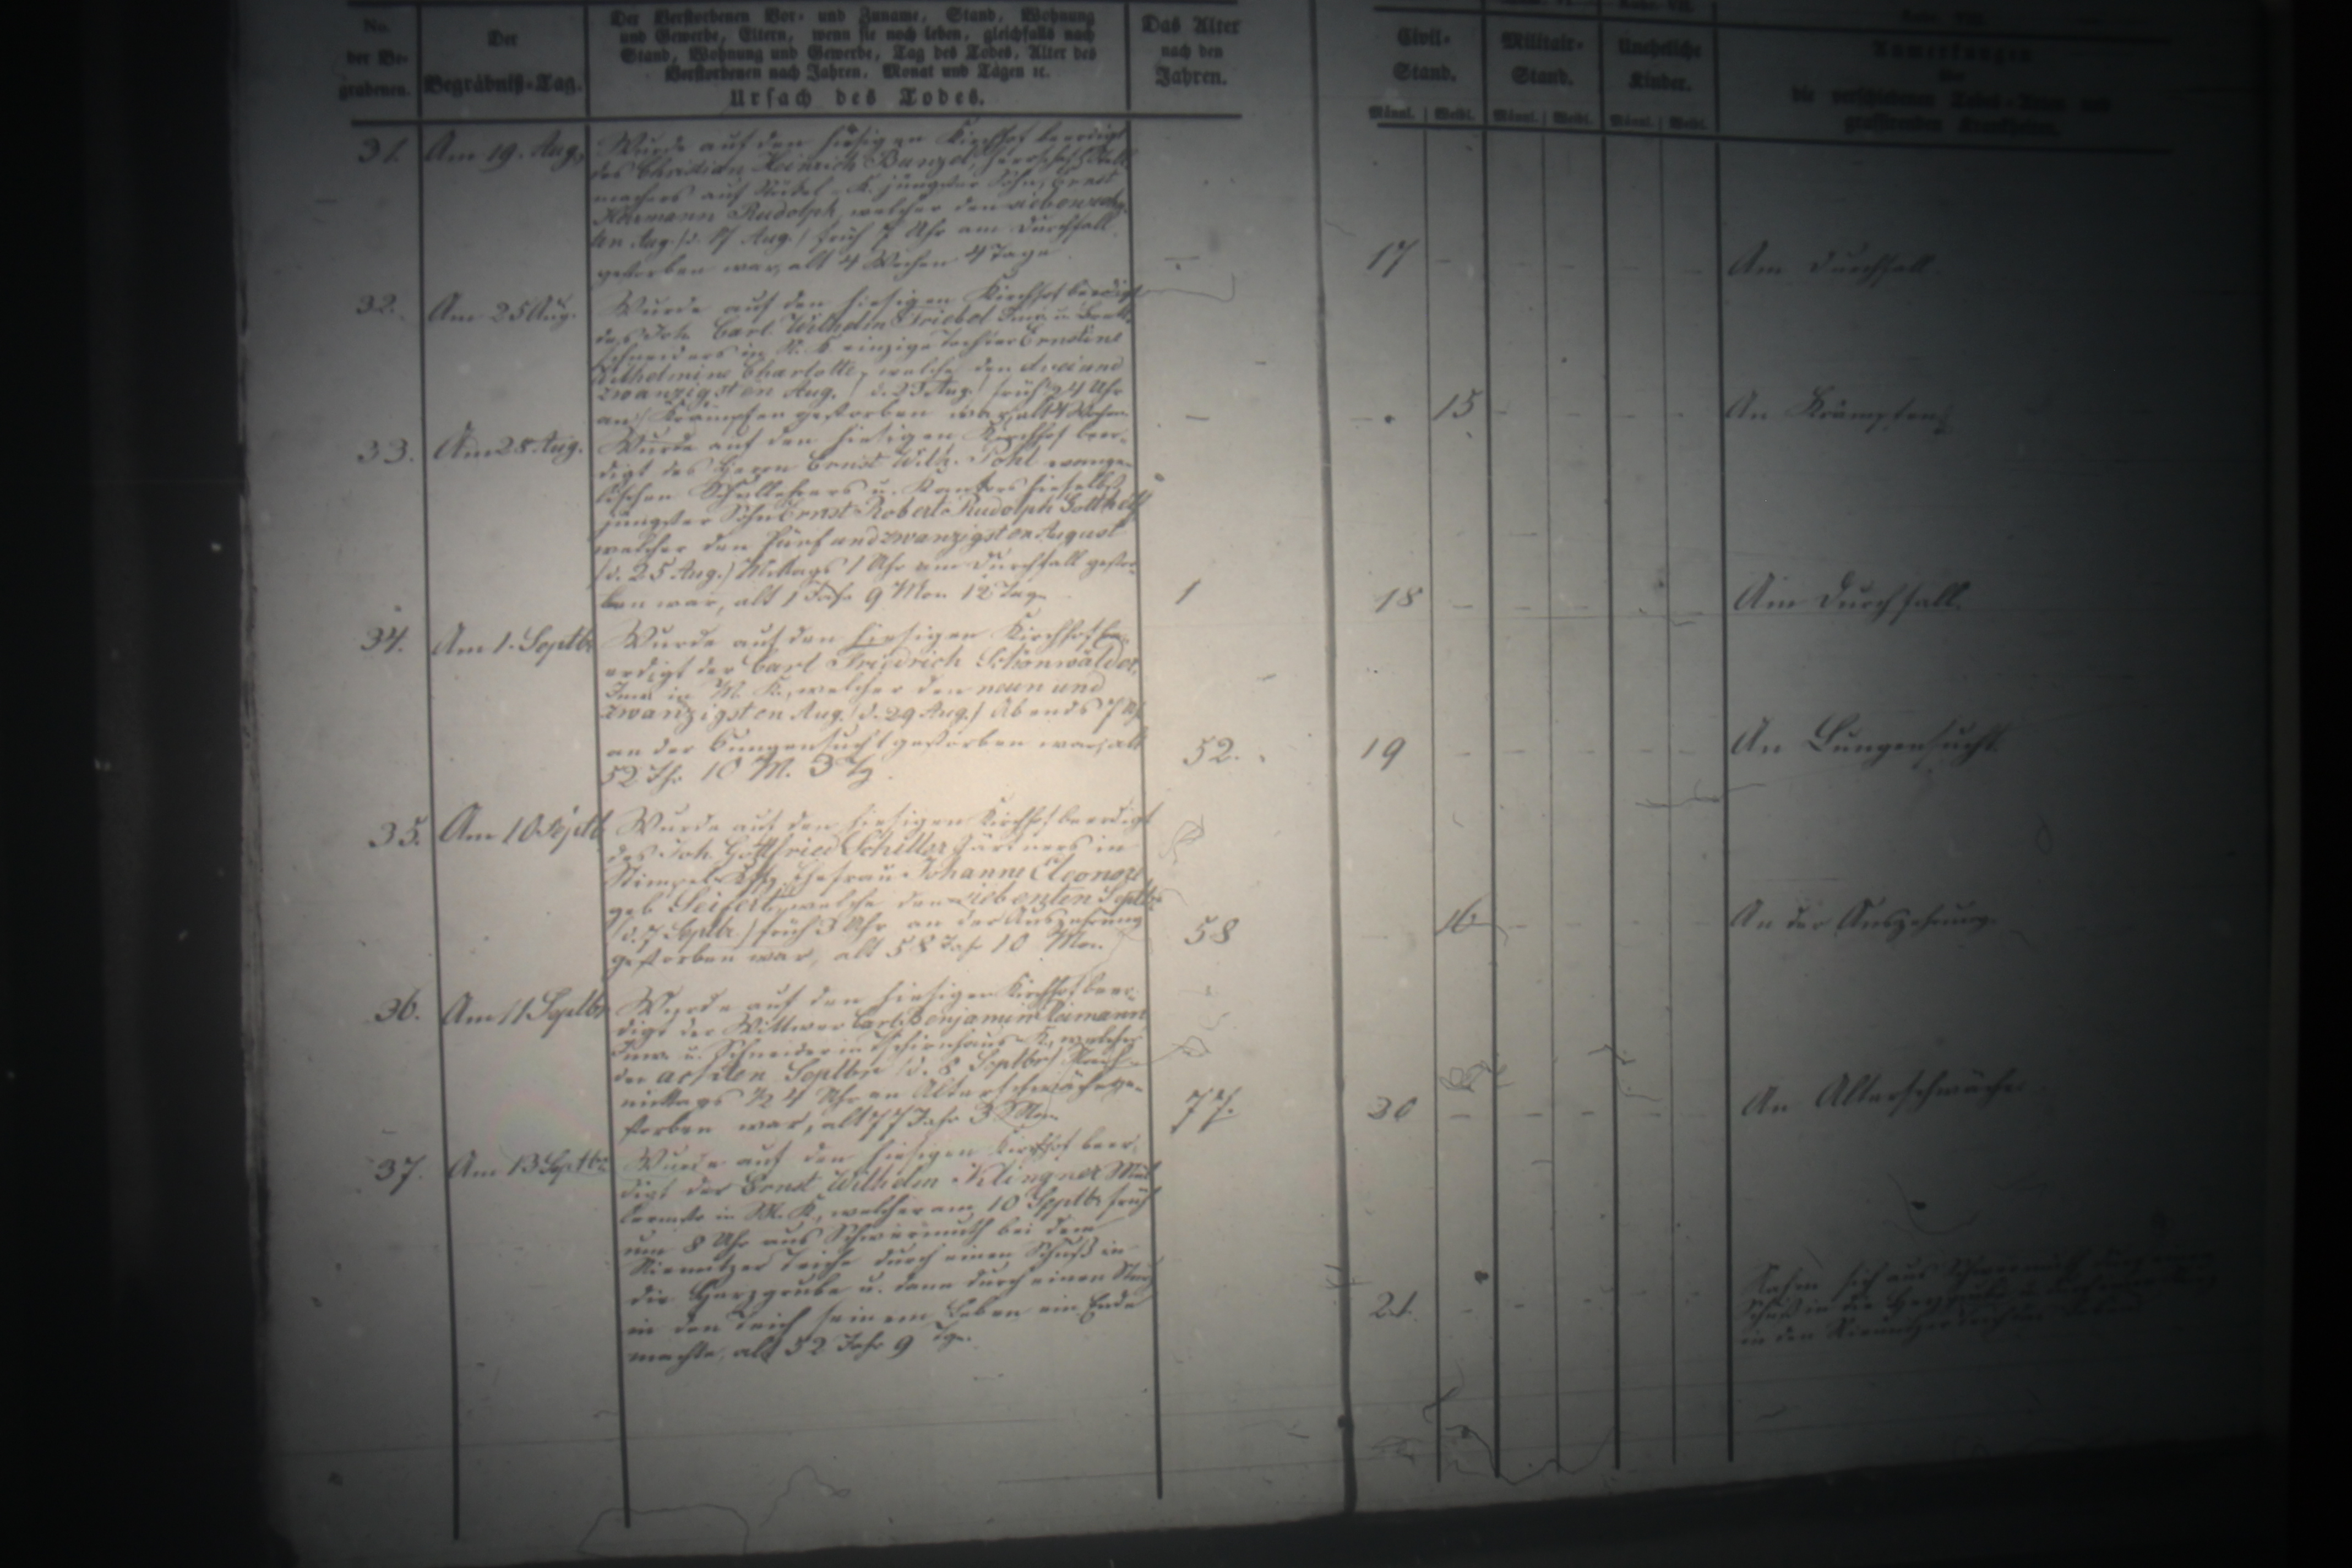 No.
der Be-
grabenen.
Der
Begräbniß-Tag.
Der Verstorbenen Vor- und Zuname, Stand, Wohnung
und Gewerbe, Eltern, wenn sie noch leben, gleichfalls nach
Stand, Wohnung und Gewerbe, Tag des Todes, Alter des
Verstorbenen nach Jahren, Monat und Tagen ꝛc.
Ursach des Todes.
Das Alter
nach den
Jahren.
Civil-
Stand.
Männl. Weibl.
Militair-
Stand.
Männl. Weibl.
Uneheliche
Kinder.
Männl. Weibl.
Anmerkungen
über
die verschiedenen Todes-Arten und
grassirenden Krankheiten.
31. Am 19. Aug.
Wurde auf den hiesigen Kirchhof beerdigt
des Christian Heinrich Bunzel,
machers auf K. jüngster Sohn, Ernst
Herrmann Rudolph, welcher den siebenzehn-
ten Aug. (d. 17 Aug.) früh 7 Uhr am Durchfall
gestorben war, alt 4 Wochen 4 Tage.
— 17 Am Durchfall.
32. Am 25 Aug.
Wurde auf den hiesigen Kirchhof beerdigt
des Joh. Carl Wilhelm Friebel Inw. u. Brett-
schneiders in N. K. einzige Tochter Ernstine
Wilhelmine Charlotte, welche den drei und
zwanzigsten Aug. (d. 23 Aug.) früh 4 Uhr
an Krämpfen gestorben war, alt 4 Wochen
— 15 An Krämpfen.
33. Am 28 Aug.
Wurde auf den hiesigen Kirchhof beer-
digt des Herrn Ernst Wilh. Pohl evange-
lischen Schullehrers u. Kantors hieselbst
jüngster Sohn Ernst Robert Rudolph Gotthelf
welcher den fünf und zwanzigsten August
(d. 25 Aug.) Mittags 1 Uhr am Durchfall gestor-
ben war, alt 1 Jahr 9 Mon. 12 Tage
1 18 Am Durchfall.
34. Am 1. Septbr
Wurde auf den hiesigen Kirchhof be-
erdigt der Carl Friedrich Schönwälder,
Inw. in M. K., welcher den neun und
zwanzigsten Aug. (d. 29 Aug.) Abends 7 Uhr
an der Lungensucht gestorben war, alt
52 Jh. 10 M. 3 Tg.
52. 19 An Lungensucht.
35. Am 10 Septb.
Wurde auf den hiesigen Kirchhof beerdigt
des Joh. Gottfried Schiller Gärtners in
Ehefrau Johanne Eleonore
geb. Seifert, welche den siebenten Septbr
(d. 7 Septbr.) früh 3 Uhr an der Auszehrung
gestorben war, alt 58 Jahr 10 Mon.
58 16 An der Auszehrung.
36. Am 11 Septbr
Wurde auf den hiesigen Kirchhof beer-
digt der Wittwer Carl Benjamin Reimann
Inw. u. Schneider in Tschirnhaus-K., welcher
den achten Septbr (d. 8 Septbr) Nach-
mittags ½ 4 Uhr an Altersschwäche ge-
storben war, alt 77 Jahr 3 Mon.
77. 20 An Altersschwäche.
37. Am 13 Septbr
Wurde auf den hiesigen Kirchhof beer-
digt der Ernst Wilhelm Klingner Mül-
lermstr in M. K., welcher am 10 Septbr früh
um 8 Uhr aus Schwermuth bei dem
Teiche durch einen Schuß in
die Herzgrube u. dann durch einen Sturz
in den Teich seinem Leben ein Ende
machte, alt 52 Jahr 9 Tge.
21. Nahm sich aus Schwermuth durch einen
Schuß in die Herzgrube
in den